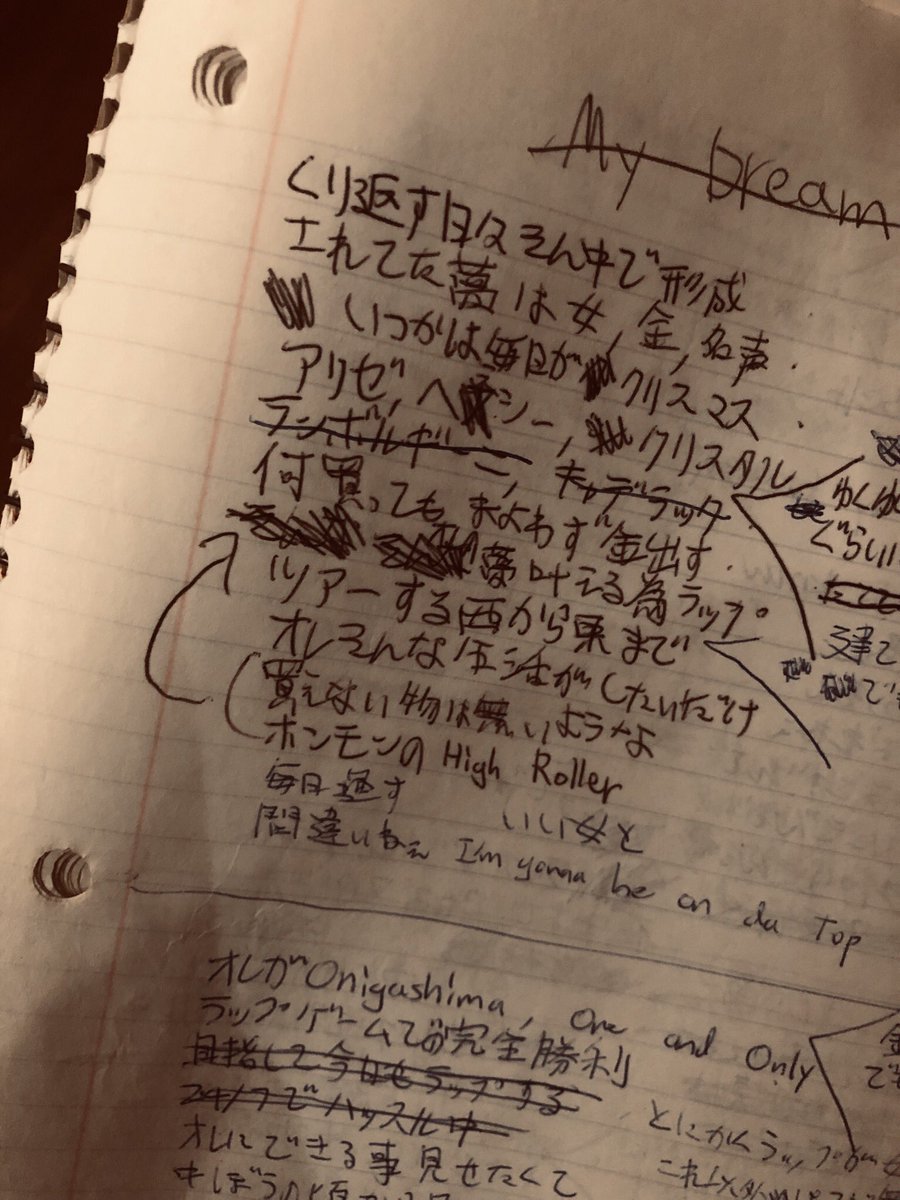 My Dream
くり返す日々そん中で形成
されてた夢は女,金,名声.
いつかは毎日がクリスマス.
アリゼ,ヘネシー,クリスタル
ランボルギーニ,キャデラック
何買ってもまよわず金出す.
夢叶える為ラップ。
ツアーする西から東まで
オレそんな生活がしたいだけ
買えない物は無いような
ホンモンのHigh Roller
毎日過す いい女と
間違いねぇ I'm gonna be on da Top
ゆくゆ
ぐらい
建て
で
オレがOnigashima, One and Only
ラップゲームで完全勝利
目指して今日もラップする
24/7でハッスル中
オレにできる事見せたくて
とにかくラップが
金
で